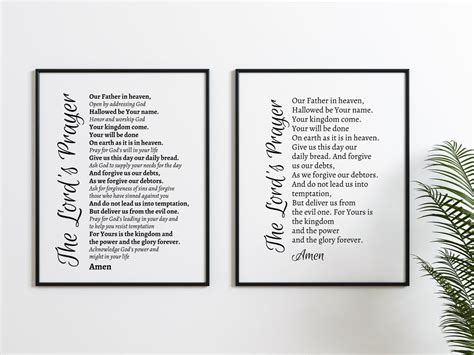 The Lord's Prayer
Our Father in heaven,
Open by addressing God
Hallowed be Your name.
Honor and worship God
Your kingdom come.
Your will be done
On earth as it is in heaven.
Pray for God's will in your life
Give us this day our daily bread.
Ask God to supply your needs for the day
And forgive us our debts,
As we forgive our debtors.
Ask for forgiveness of sins and forgive those
who have sinned against you
And do not lead us into temptation,
But deliver us from the evil one.
Pray for God's leading in your day and
to help you resist temptation
For Yours is the kingdom and
the power and the glory forever.
Acknowledge God's power and
might in your life
Amen
The Lord's Prayer
Our Father in heaven,
Hallowed be Your name.
Your kingdom come.
Your will be done
On earth as it is in heaven.
Give us this day our daily
bread. And forgive
us our debts,
As we forgive our debtors.
And do not lead us into
temptation,
But deliver us from
the evil one. For Yours is
the kingdom
and the power
and the glory forever.
Amen